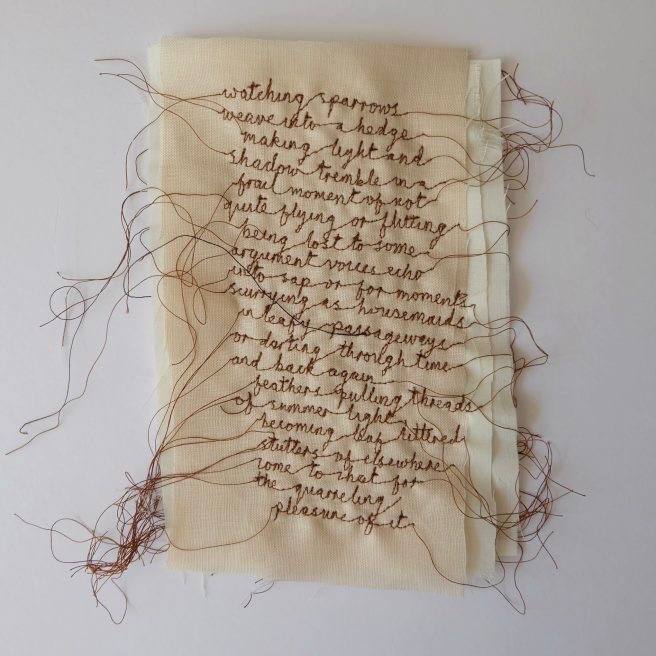 watching sparrows
weave into a hedge
making light and
shadow tremble in a
frail moment of not
quite flying or flitting
being lost to some
argument voices echo
into sap or for moments
scurrying as housemaids
in leafy passageways
or darting through time
and back again
feathers pulling threads
of summer light
becoming leaf littered
stutters of elsewhere
come to that for
the quarreling
pleasure of it